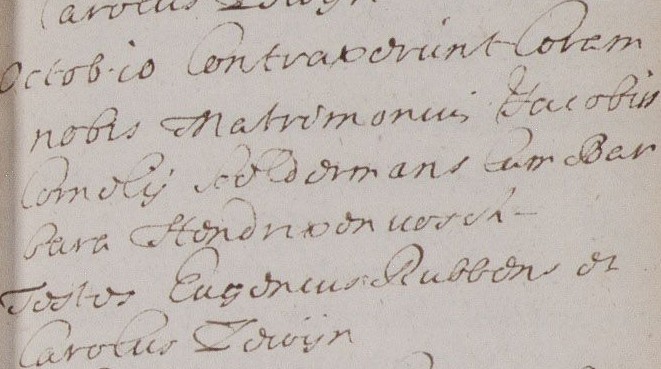 Carolus Zewijn
Octob 10 Contraxerunt Coram
nobis Matrimonium Jacobus
Cornelij Seldermans Cum Bar
bara Hendrixen vosch-
Testes Eugenius Rubbens et
Carolus Zewijn